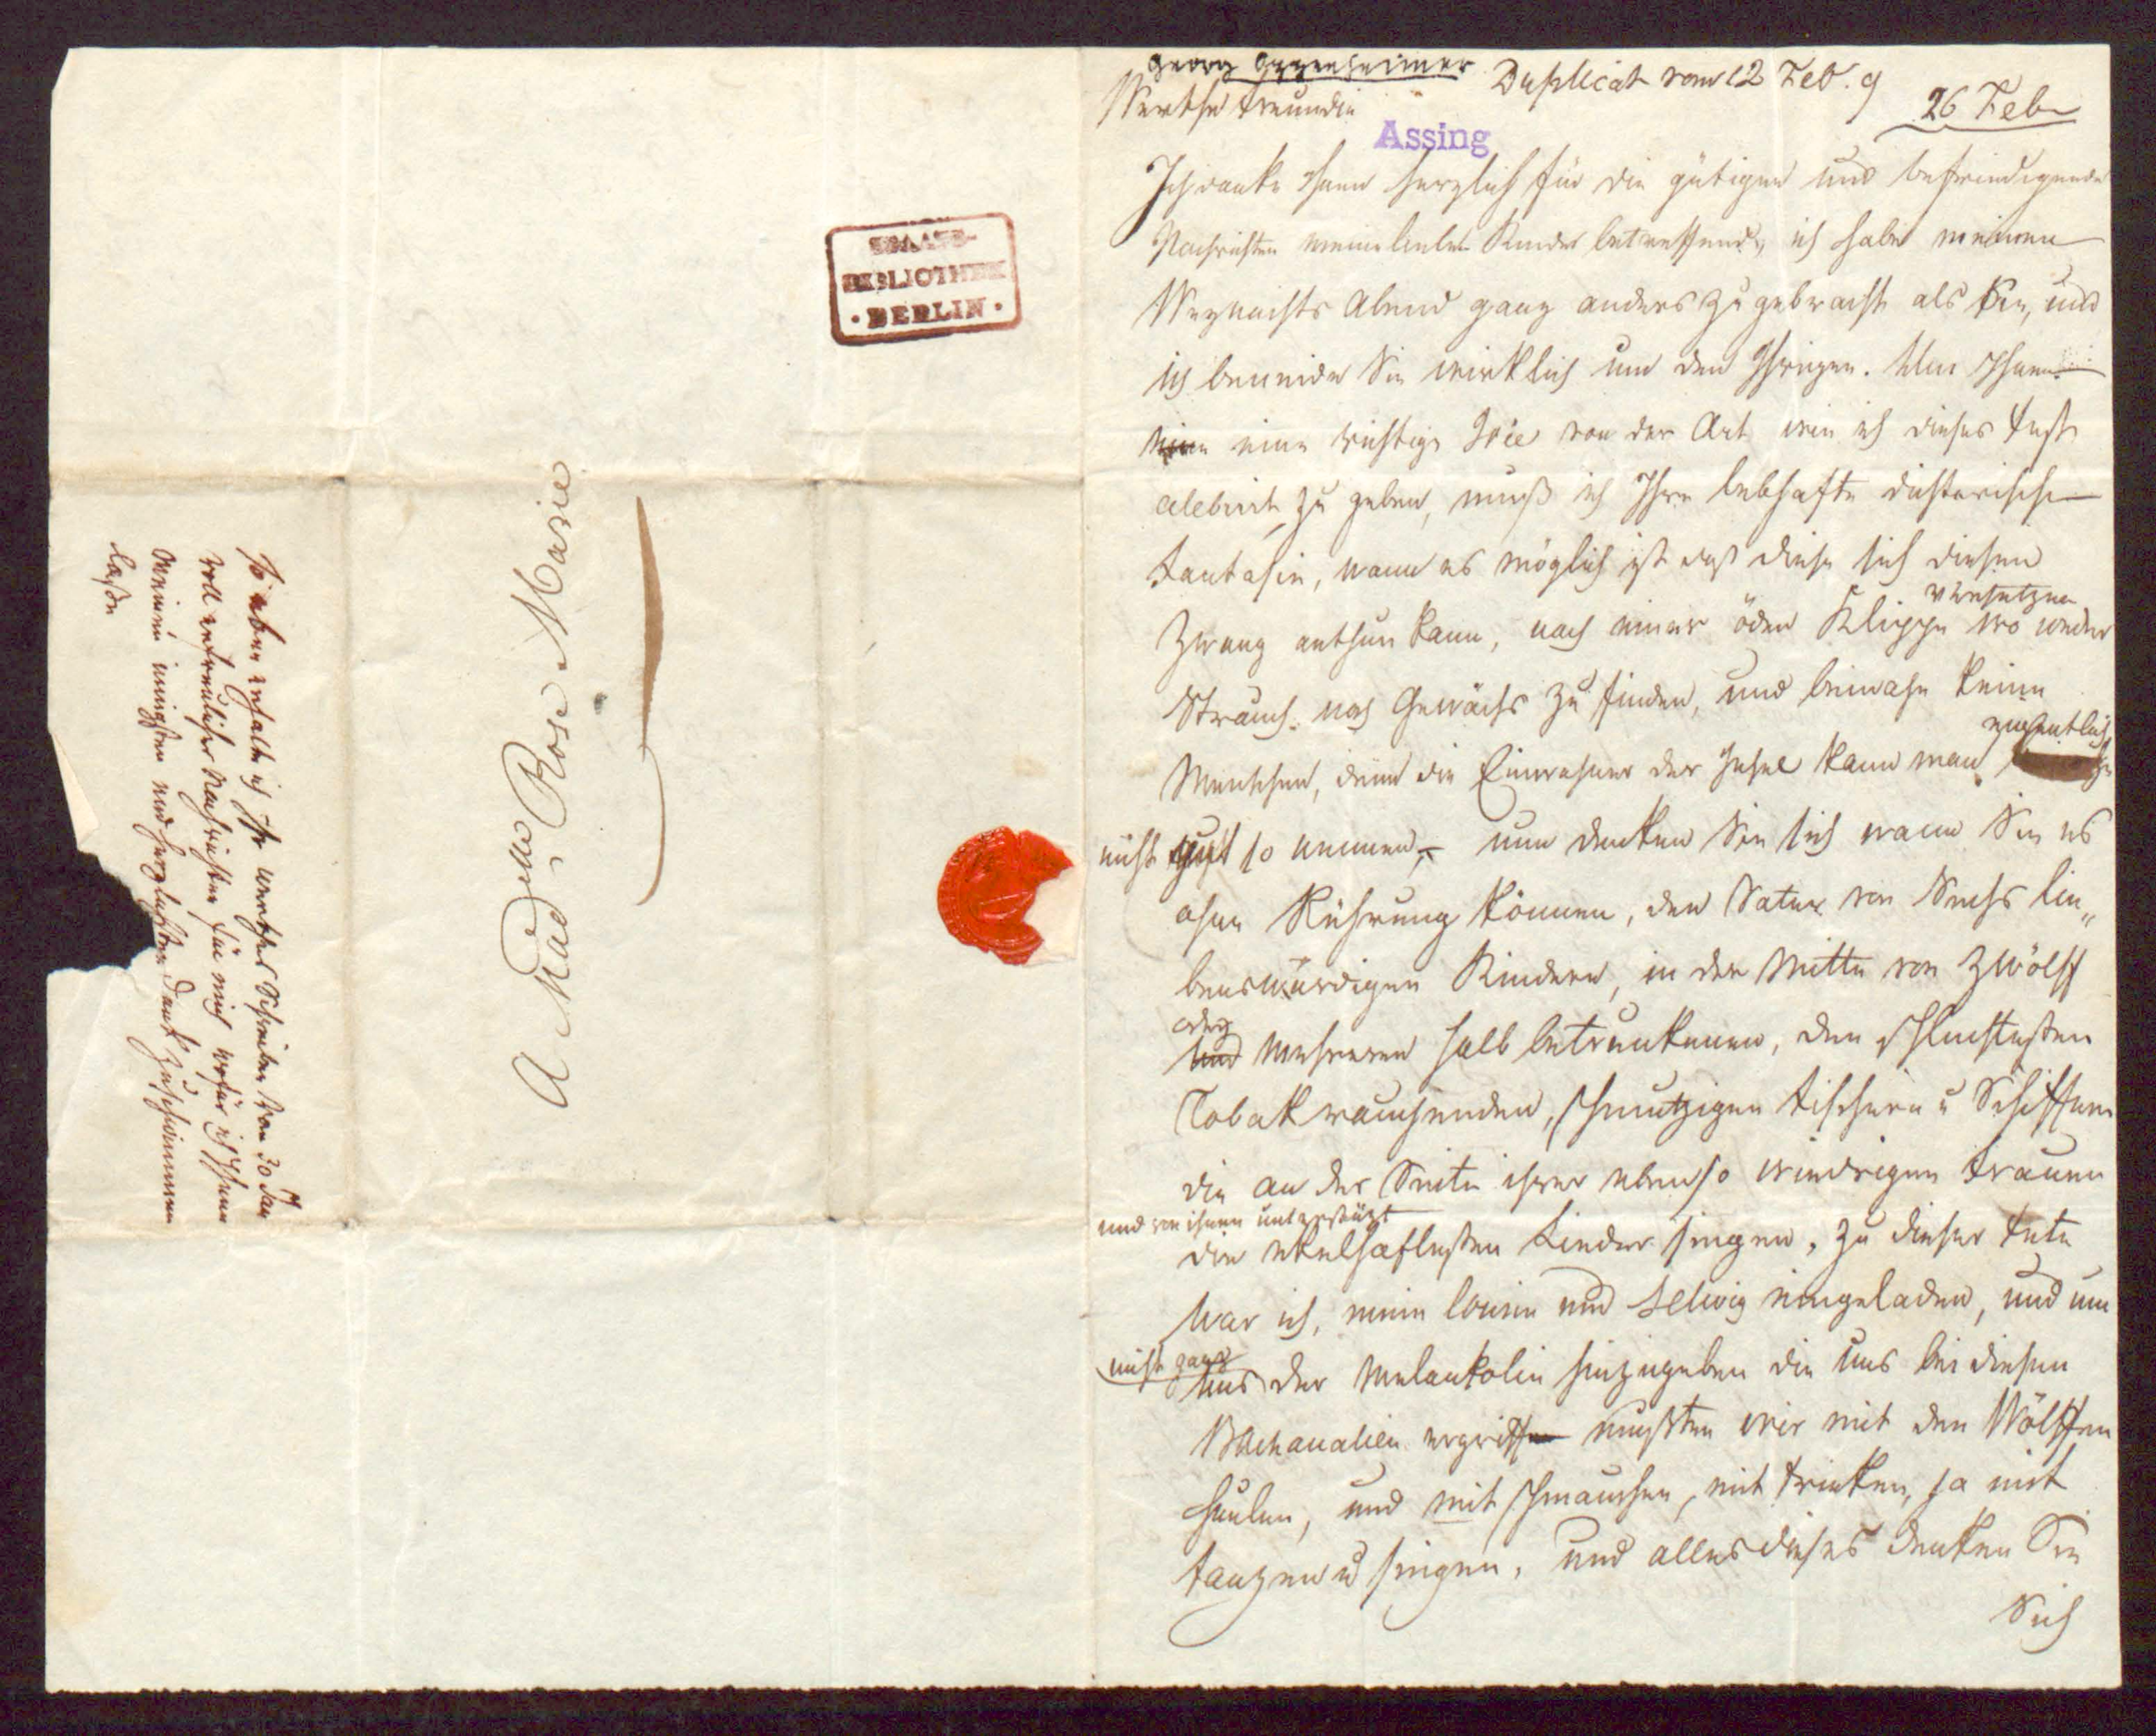 Georg Oppenheimer
Duplicat vom 12 Feb. 9
26 Feb
Werthe Freundin
Assing
Ich danke Ihnen herzlich für die gütigen und befriedigende
Nachrichten meine lieben Kinder betreffend, ich habe meinen
Weynachts Abend ganz anders zugebracht als Sie, und
ich beneide Sie wirklich um den Ihrigen. Um Ihnen
eine richtige Idée von der Art wie ich dieses Fest
celebrirt zu geben, muß ich Ihre lebhafte dichterische
Fantasie, wann es möglich ist daß diese sich diesen
Zwang anthun kann, nach einer öden Klippe versetzen wo weder
Strauch noch Gewächs zu finden, und beinahe keine
Menschen, denn die Einwohner der Insel kann man eigentlich
nicht gut so nennen, – nun denken Sie sich wann Sie es
ohne Rührung können, den Vater von Sechs lie„
benswürdigen Kindern, in der Mitte von Zwölff
oder
und mehreren halb betrunkenen, den schlechtesten
Tobak rauchenden, schmutzigen Fischern u Schiffern
die an der Seite ihrer ebenso wiedrigen Frauen
und von ihnen unterstüzt
die ekelhaftesten Lieder singen. Zu dieser Fete
war ich, mein Cousin und Helwig eingeladen, und um
nicht ganz
uns der Melankolie hinzugeben die uns bei diesen
Bachanalien ergriffen mußten wir mit den Wölffen
heulen, und mit schmauchen, mit trinken, ja mit
tanzen u singen. Und alles dieses denken Sie
Sich
A Mad.elle Rose Marie
So eben erhalte ich Ihr werthes Schreiben vom 30 Jan
voll erfreulicher Nachrichten für mich wofür ich Ihnen
meinen innigsten und herzlichsten Dank zukommen
laße
STAATS-
BIBLIOTHEK
• BERLIN •